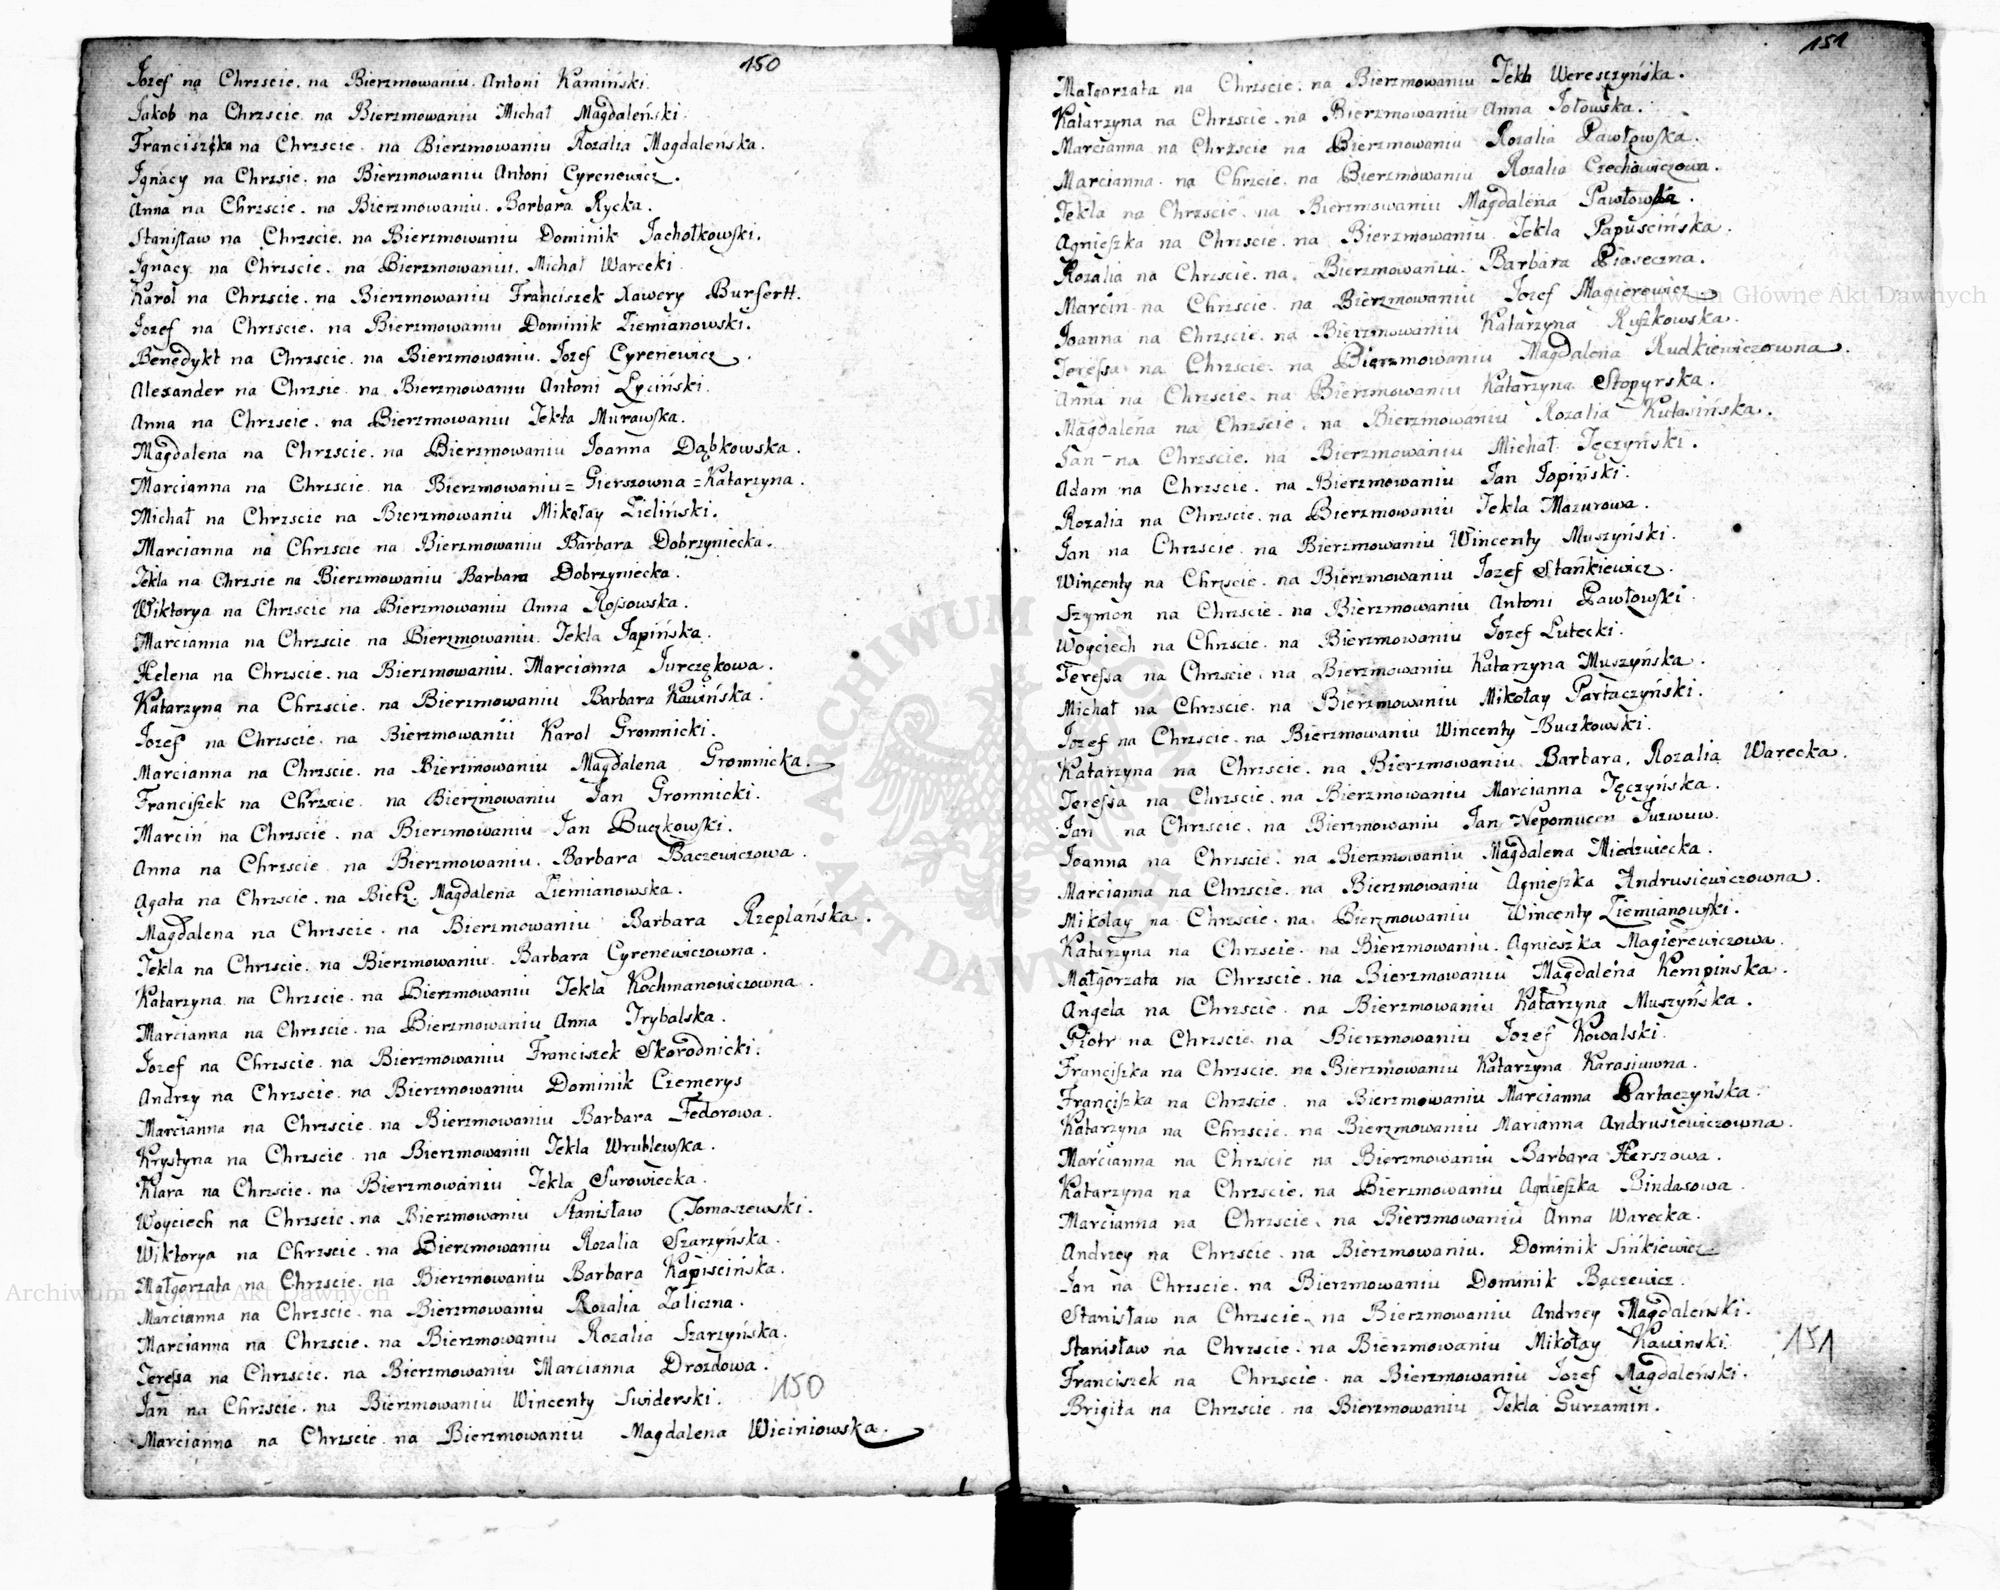 150
Jozef na Chrzscie. na Bierzmowaniu. Antoni Kamiński.
Jakob na Chrzscie. na Bierzmowaniu Michał Magdaleński.
Franciszka na Chrzscie. na Bierzmowaniu Rozalia Magdaleńska.
Jgnacy na Chrzsie. na Bierzmowaniu Antoni Cyrenewicz.
Anna na Chrzscie. na Bierzmowaniu. Barbara Rycka.
Stanisław na Chrzscie. na Bierzmowaniu Dominik Jachołkowski.
Jgnacy na Chrzscie. na Bierzmowaniu. Michał Warecki.
Karol na Chrzscie. na Bierzmowaniu Franciszek Xawery Bursertt.
Jozef na Chrzscie. na Bierzmowaniu Dominik Ziemianowski.
Benedykt na Chrzscie. na Bierzmowaniu. Jozef Cyrenewicz.
Alexander na Chrzsie. na Bierzmowaniu Antoni Łyciński.
Anna na Chrzscie. na Bierzmowaniu Tekla Murawska.
Magdalena na Chrzscie. na Bierzmowaniu Joanna Dąbkowska.
Marcianna na Chrzscie na Bierzmowaniu = Gierszowna = Katarzyna.
Michał na Chrzscie na Bierzmowaniu Mikołay Zieliński.
Marcianna na Chrzscie na Bierzmowaniu Barbara Dobrzyniecka.
Tekla na Chrzsie na Bierzmowaniu Barbara Dobrzyniecka.
Wiktorya na Chrzscie na Bierzmowaniu Anna Rossowska.
Marcianna na Chrzscie na Bierzmowaniu. Tekla Japińska.
Helena na Chrzscie. na Bierzmowaniu. Marcianna Jurczękowa.
Katarzyna na Chrzscie. na Bierzmowaniu Barbara Kawińska.
Jozef na Chrzscie. na Bierzmowaniu Karol Gromnicki.
Marcianna na Chrzscie. na Bierzmowaniu Magdalena Gromnicka.
Franciszek na Chrzscie. na Bierzmowaniu Jan Gromnicki.
Marcin na Chrzscie. na Bierzmowaniu Jan Buczkowski.
Anna na Chrzscie na Bierzmowaniu. Barbara Baczewiczowa.
Agata na Chrzscie. na Bierz. Magdalena Ziemianowska.
Magdalena na Chrzscie. na Bierzmowaniu Barbara Rzeplańska.
Tekla na Chrzscie. na Bierzmowaniu. Barbara Cyrenewiczowna.
Katarzyna na Chrzscie. na Bierzmowaniu Tekla Kochmanowiczowna.
Marcianna na Chrzscie. na Bierzmowaniu Anna Trybalska.
Jozef na Chrzscie. na Bierzmowaniu Franciszek Skorodnicki.
Andrzy na Chrzscie. na Bierzmowaniu Dominik Czemerys
Marcianna na Chrzscie. na Bierzmowaniu Barbara Fedorowa.
Krystyna na Chrzscie. na Bierzmowaniu Tekla Wrublewska.
Klara na Chrzscie. na Bierzmowaniu Tekla Surowiecka.
Woyciech na Chrzscie. na Bierzmowaniu Stanisław Tomaszewski.
Wiktorya na Chrzscie. na Bierzmowaniu Rozalia Szarzyńska.
Małgorzata na Chrzscie. na Bierzmowaniu Barbara Kapiscińska.
Marcianna na Chrzscie. na Bierzmowaniu Rozalia Zaliczna.
Marcianna na Chrzscie. na Bierzmowaniu Rozalia Szarzyńska.
Teressa na Chrzscie. na Bierzmowaniu Marcianna Drozdowa.
Jan na Chrzscie. na Bierzmowaniu Wincenty Swiderski.
150
Marcianna na Chrzscie na Bierzmowaniu Magdalena Wiciniowska.
151
Małgorzata na Chrzscie. na Bierzmowaniu Tekla Weresczyńska.
Katarzyna na Chrzscie. na Bierzmowaniu Anna Jołowska.
Marcianna na Chrzscie na Bierzmowaniu Rozalia Pawłowska.
Marcianna. na Chrzcie. na Bierzmowaniu Rozalia Czechowiczowa.
Tekla na Chrzscie. na Bierzmowaniu Magdalena Pawłowska.
Agnieszka na Chrzscie. na Bierzmowaniu. Tekla Papuscińska.
Rozalia na Chrzscie. na. Bierzmowaniu. Barbara Piaseczna.
Marcin na Chrzscie. na Bierzmowaniu Jozef Magierewicz.
Joanna na Chrzscie. na Bierzmowaniu Katarzyna Ruszkowska.
Teressa na Chrzscie. na Bierzmowaniu Magdalena Rudkiewiczowna.
Anna na Chrzscie. na Bierzmowaniu Katarzyna Stopyrska.
Magdalena na Chrzscie. na Bierzmowaniu Rozalia Kułasińska.
Jan na Chrzscie. na Bierzmowaniu Michał Tęczyński.
Adam na Chrzscie. na Bierzmowaniu Jan Jopiński.
Rozalia na Chrzscie. na Bierzmowaniu Tekla Mazurowa.
Jan na Chrzscie. na Bierzmowaniu Wincenty Muszyński.
Wincenty na Chrzscie. na Bierzmowaniu Jozef Stańkiewicz.
Szymon na Chrzscie. na Bierzmowaniu Antoni Pawłowski.
Woyciech na Chrzscie. na Bierzmowaniu Jozef Lutecki.
Teressa na Chrzscie. na Bierzmowaniu Katarzyna Muszyńska.
Michał na Chrzscie. na Bierzmowaniu Mikołay Partaczyński.
Jozef na Chrzscie. na Bierzmowaniu Wincenty Buczkowski.
Katarzyna na Chrzscie. na Bierzmowaniu Barbara, Rozalia Warecka.
Teressa na Chrzscie. na Bierzmowaniu Marcianna Tęczyńska.
Jan na Chrzscie. na Bierzmowaniu Jan Nepomucen
Joanna na Chrzscie. na Bierzmowaniu Magdalena Miedzwiecka.
Marcianna na Chrzscie. na Bierzmowaniu Agnieszka Andrusiewiczowna.
Mikołay na Chrzscie. na Bierzmowaniu Wincenty Ziemianowski.
Katarzyna na Chrzscie. na Bierzmowaniu. Agnieszka Magierewiczowa.
Małgorzata na Chrzscie. na Bierzmowaniu Magdalena Kempinska.
Angela na Chrzscie. na Bierzmowaniu Katarzyna Muszyńska.
Piotr na Chrzscie na Bierzmowaniu Jozef Kowalski.
Franciszka na Chrzscie. na Bierzmowaniu Katarzyna Karasiuwna.
Franciszka na Chrzscie. na Bierzmowaniu Marcianna Partaczyńska.
Katarzyna na Chrzscie. na Bierzmowaniu Marianna Andrusiewiczowna.
Marcianna na Chrzscie na Bierzmowaniu Barbara Herszowa.
Katarzyna na Chrzscie. na Bierzmowaniu Agnieszka Bindasowa.
Marcianna na Chrzscie. na Bierzmowaniu Anna Warecka.
Andrzey na Chrzscie. na Bierzmowaniu. Dominik Sińkiewicz
Jan na Chrzscie. na Bierzmowaniu Dominik Bączewicz.
Stanisław na Chrzscie. na Bierzmowaniu Andrzey Magdaleński.
Stanisław na Chrzscie. na Bierzmowaniu Mikołay Kawinski.
151
Franciszek na Chrzscie. na Bierzmowaniu Jozef Magdaleński.
Brigita na Chrzscie. na Bierzmowaniu Tekla Gurzamin.
ARCHIWUM GŁÓWNE AKT DAWNYCH
Archiwum Główne Akt Dawnych
Archiwum Główne Akt Dawnych